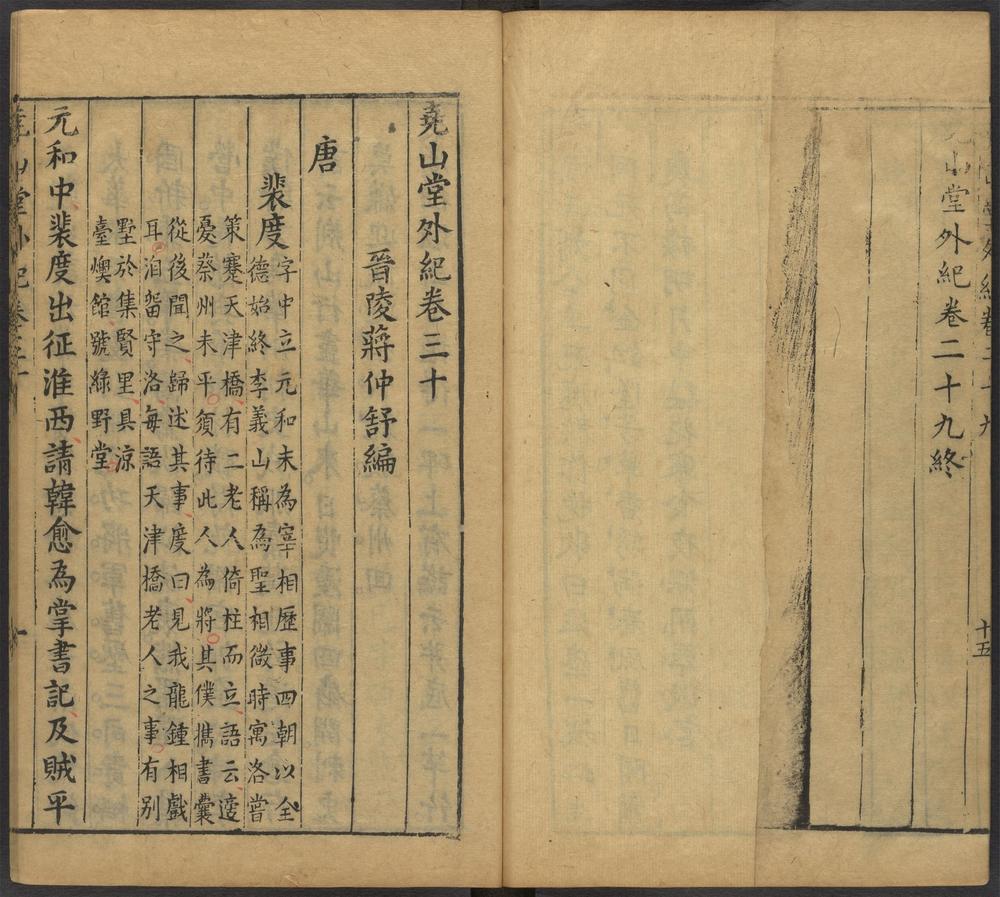 山堂外紀卷二十九
十五
堯山堂外紀卷二十九終
堯山堂外紀卷三十
晉陵蔣仲舒編
唐
裴度
字中立元和末為宰相歷事四朝以全
德始終李義山稱為聖相微時寓洛嘗
策蹇天津橋有二老人倚柱而立語云適
憂蔡州未平須待此人為將其僕攜書囊
從後聞之歸述其事度曰見我龍鍾相戲
耳洎留守洛每語天津橋老人之事有别
墅於集賢里具涼
臺燠館號綠野堂
元和中裴度出征淮西請韓愈為掌書記及賊平
堯山堂外紀卷三十